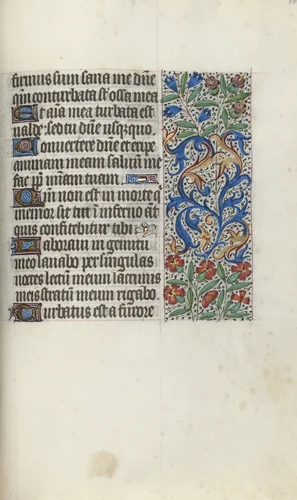 firmus sum sana me dne
qm conturbata st ossa mea
Et aīa mea turbata est
valde sed tu dne usququo.
Convertere dne et eripe
animam meam salvum me
fac pp mīam tuam.
Qm non est in morte q
memor sit tui ī inferno aūt
quis confitebitur tibi
Laboravi in gemitu
meo lavabo per singulas
noctes lectū meum lacrimis
meis stratū meum rigabo.
Turbatus est a furore